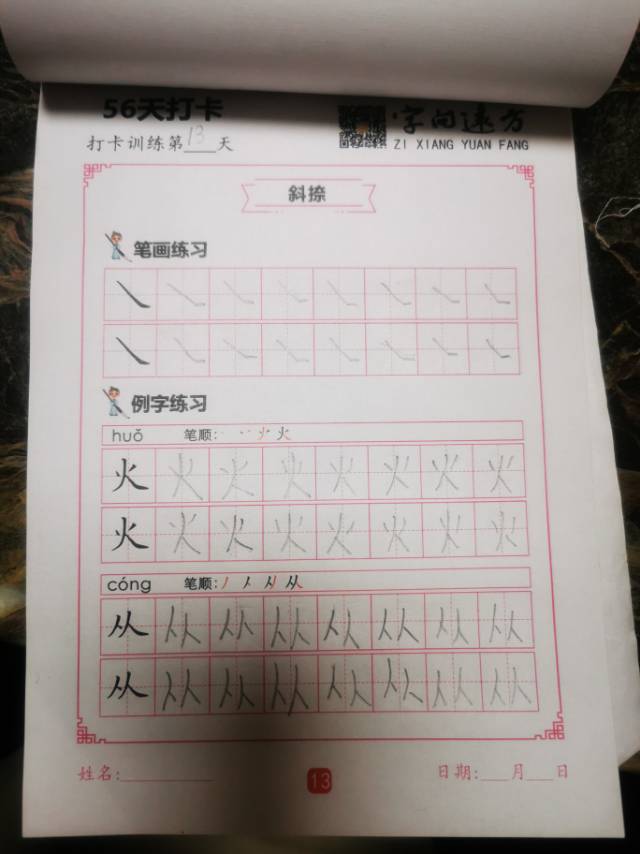 56天打卡
字间远方
打卡训练第13天
ZI XIANG YUAN FANG
斜捺
笔画练习
例字练习
huǒ 笔顺: 火
火 火 火 火 火 火 火 火
火 火 火 火 火 火 火 火
cóng 笔顺: 丿 人 从
从 从 从 从 从 从 从 从
从 从 从 从 从 从 从 从
姓名:
13
日期: 月 日